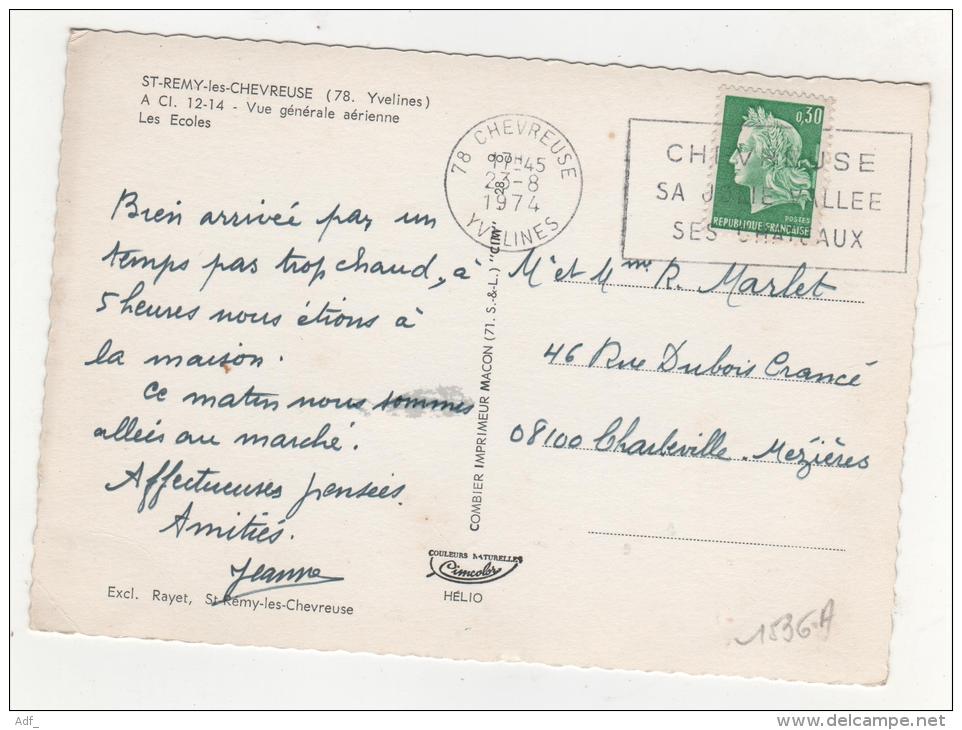 ST-REMY-les-CHEVREUSE (78. Yvelines)
A CI. 12-14 - Vue générale aérienne
Les Ecoles
78 CHEVREUSE
17-45
23-8
1974
YVELINES
0,30
POSTES
REPUBLIQUE FRANÇAISE
CHEVREUSE
SA JOLIE VALLEE
SES CHATEAUX
Bien arrivée par un
temps pas trop chaud, à
5 heures nous étions à
la maison.
Ce matin nous sommes
alleés au marché.
Affectueuses pensées
Amitiés.
Jeanne
Excl. Rayet, St-Rémy-les-Chevreuse
COMBIER IMPRIMEUR MACON (71. S.-&-L.) "CIM"
COULEURS NATURELLES
Cimcolor
HÉLIO
Mr et Mme R. Marlet
46 Rue Dubois Crancé
08100 Charleville-Mézières
1536-A
Adf_
delcampe.net